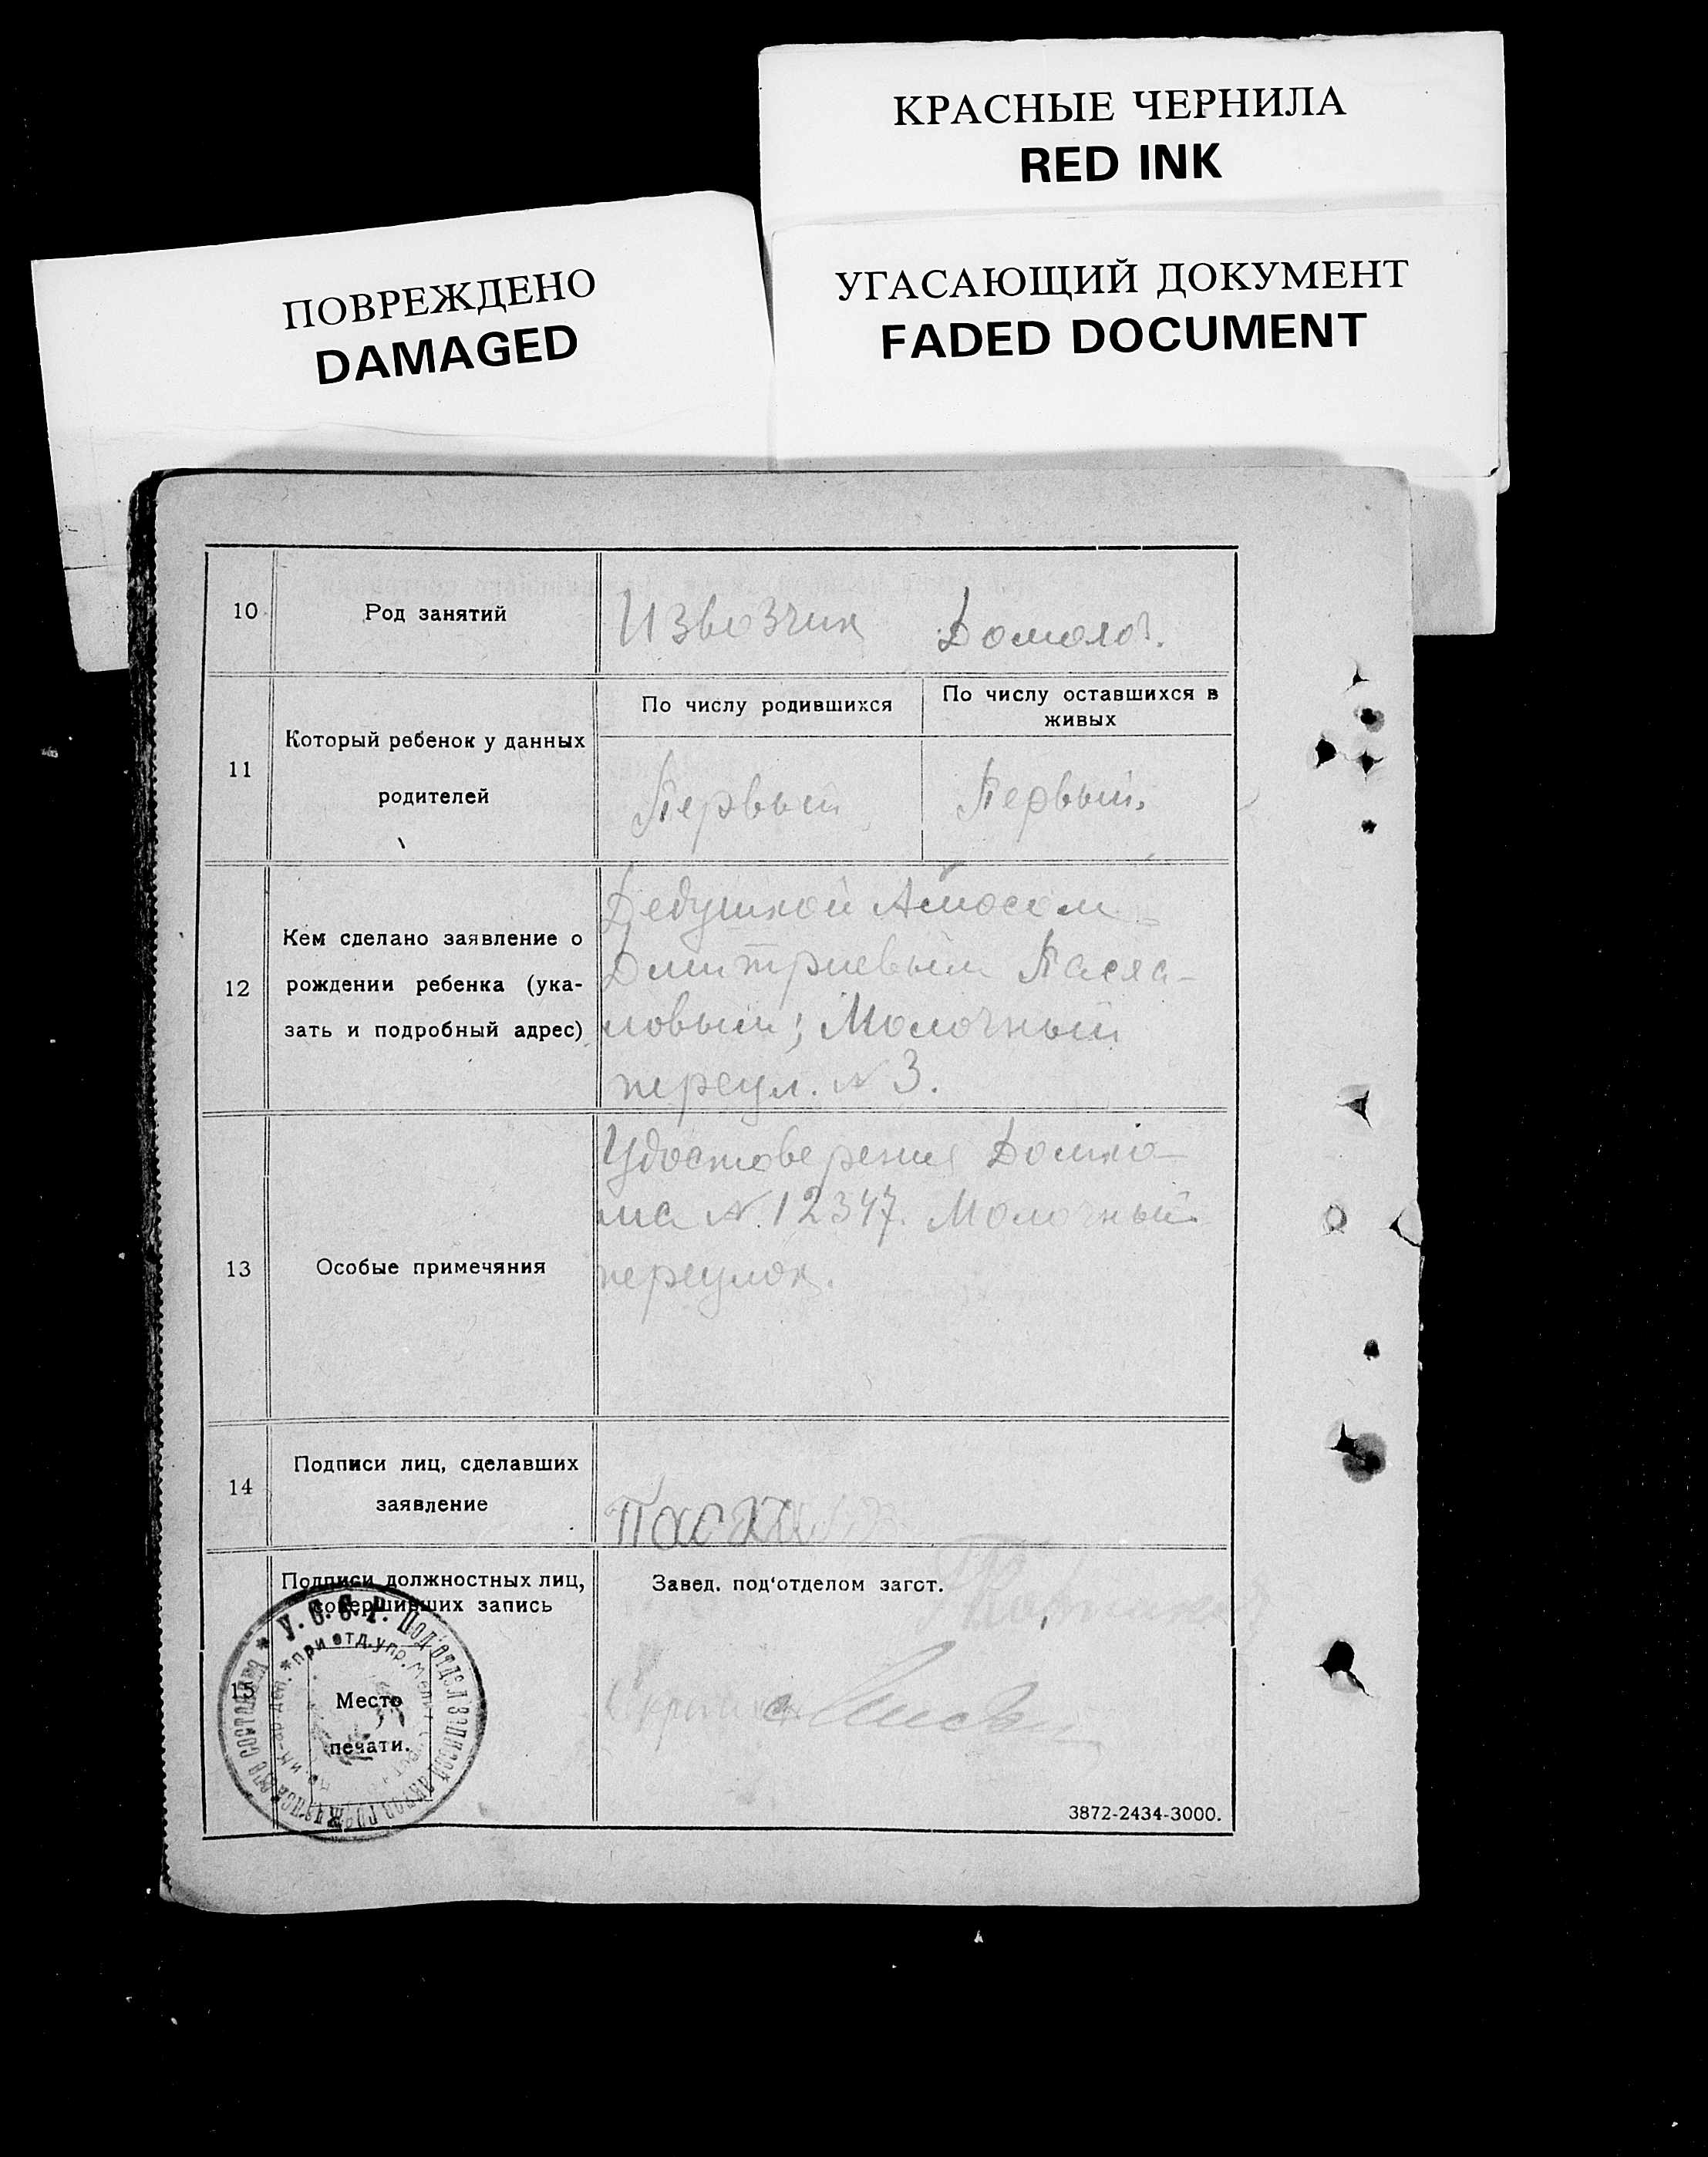 КРАСНЫЕ ЧЕРНИЛА
RED INK
ПОВРЕЖДЕНО
DAMAGED
УГАСАЮЩИЙ ДОКУМЕНТ
FADED DOCUMENT
10 Род занятий Извозчик Домохоз.
11 Который ребенок у данных
родителей
По числу родившихся
По числу оставшихся в
живых
Первый Первый.
12 Кем сделано заявление о
рождении ребенка (ука-
зать и подробный адрес)
Дедушкой Амосом
Дмитриевым
Молочный
переул. № 3.
13 Особые примечяния
Удостоверение Домко-
ма № 12347. Молочный
переулок.
14 Подписи лиц, сделавших
заявление
15 Подписи должностных лиц,
совершивших запись
Завед. под'отделом загст.
Место
печати.
У. С. С. Р. Под'отдел записей актов гражданского состояния
при отд. упр.
3872-2434-3000.